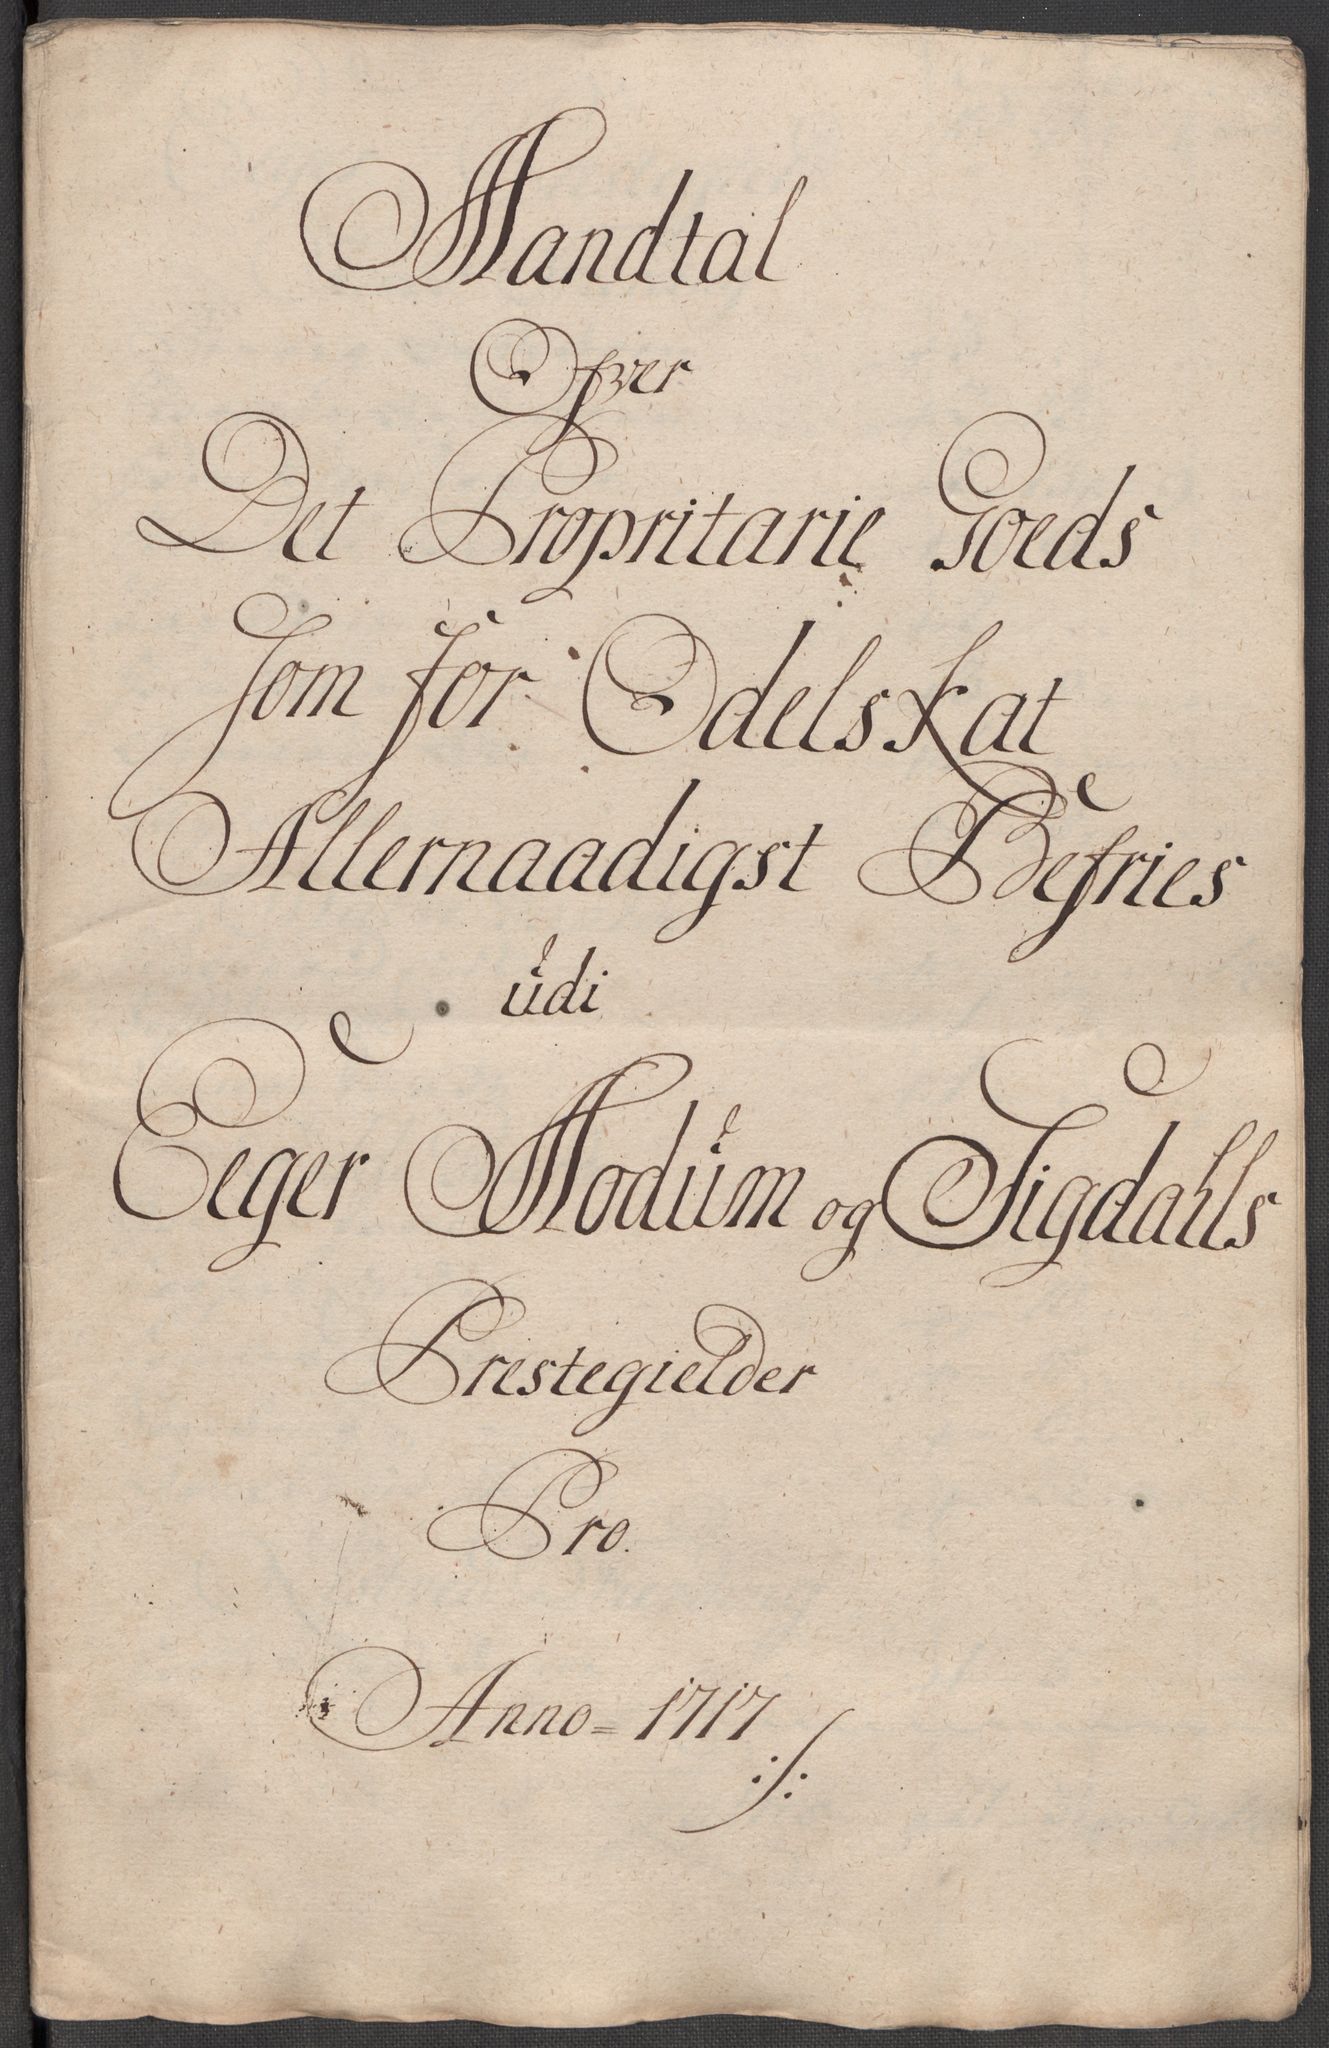 Mandtal
Ofver
Det Propritarie Goeds
Som for Odelskat
Allernaadigst Befries
udi
Eeger Modum og Sigdahls
Prestegielder
Pro.
Anno = 1717
:/: